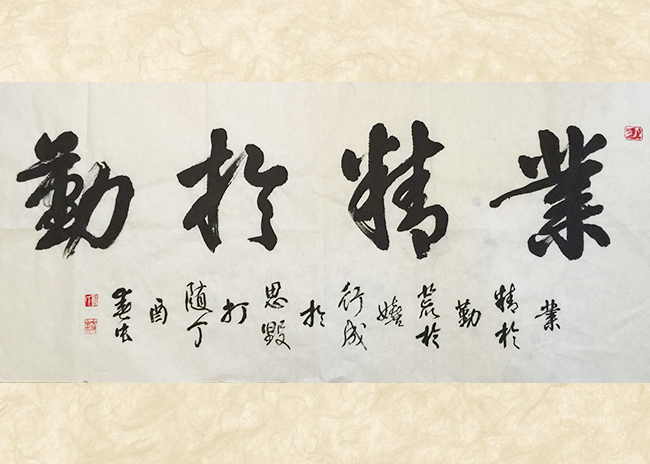 業精於勤
業
精於
勤
荒於
嬉
行成
於
思毀
於
随丁
酉